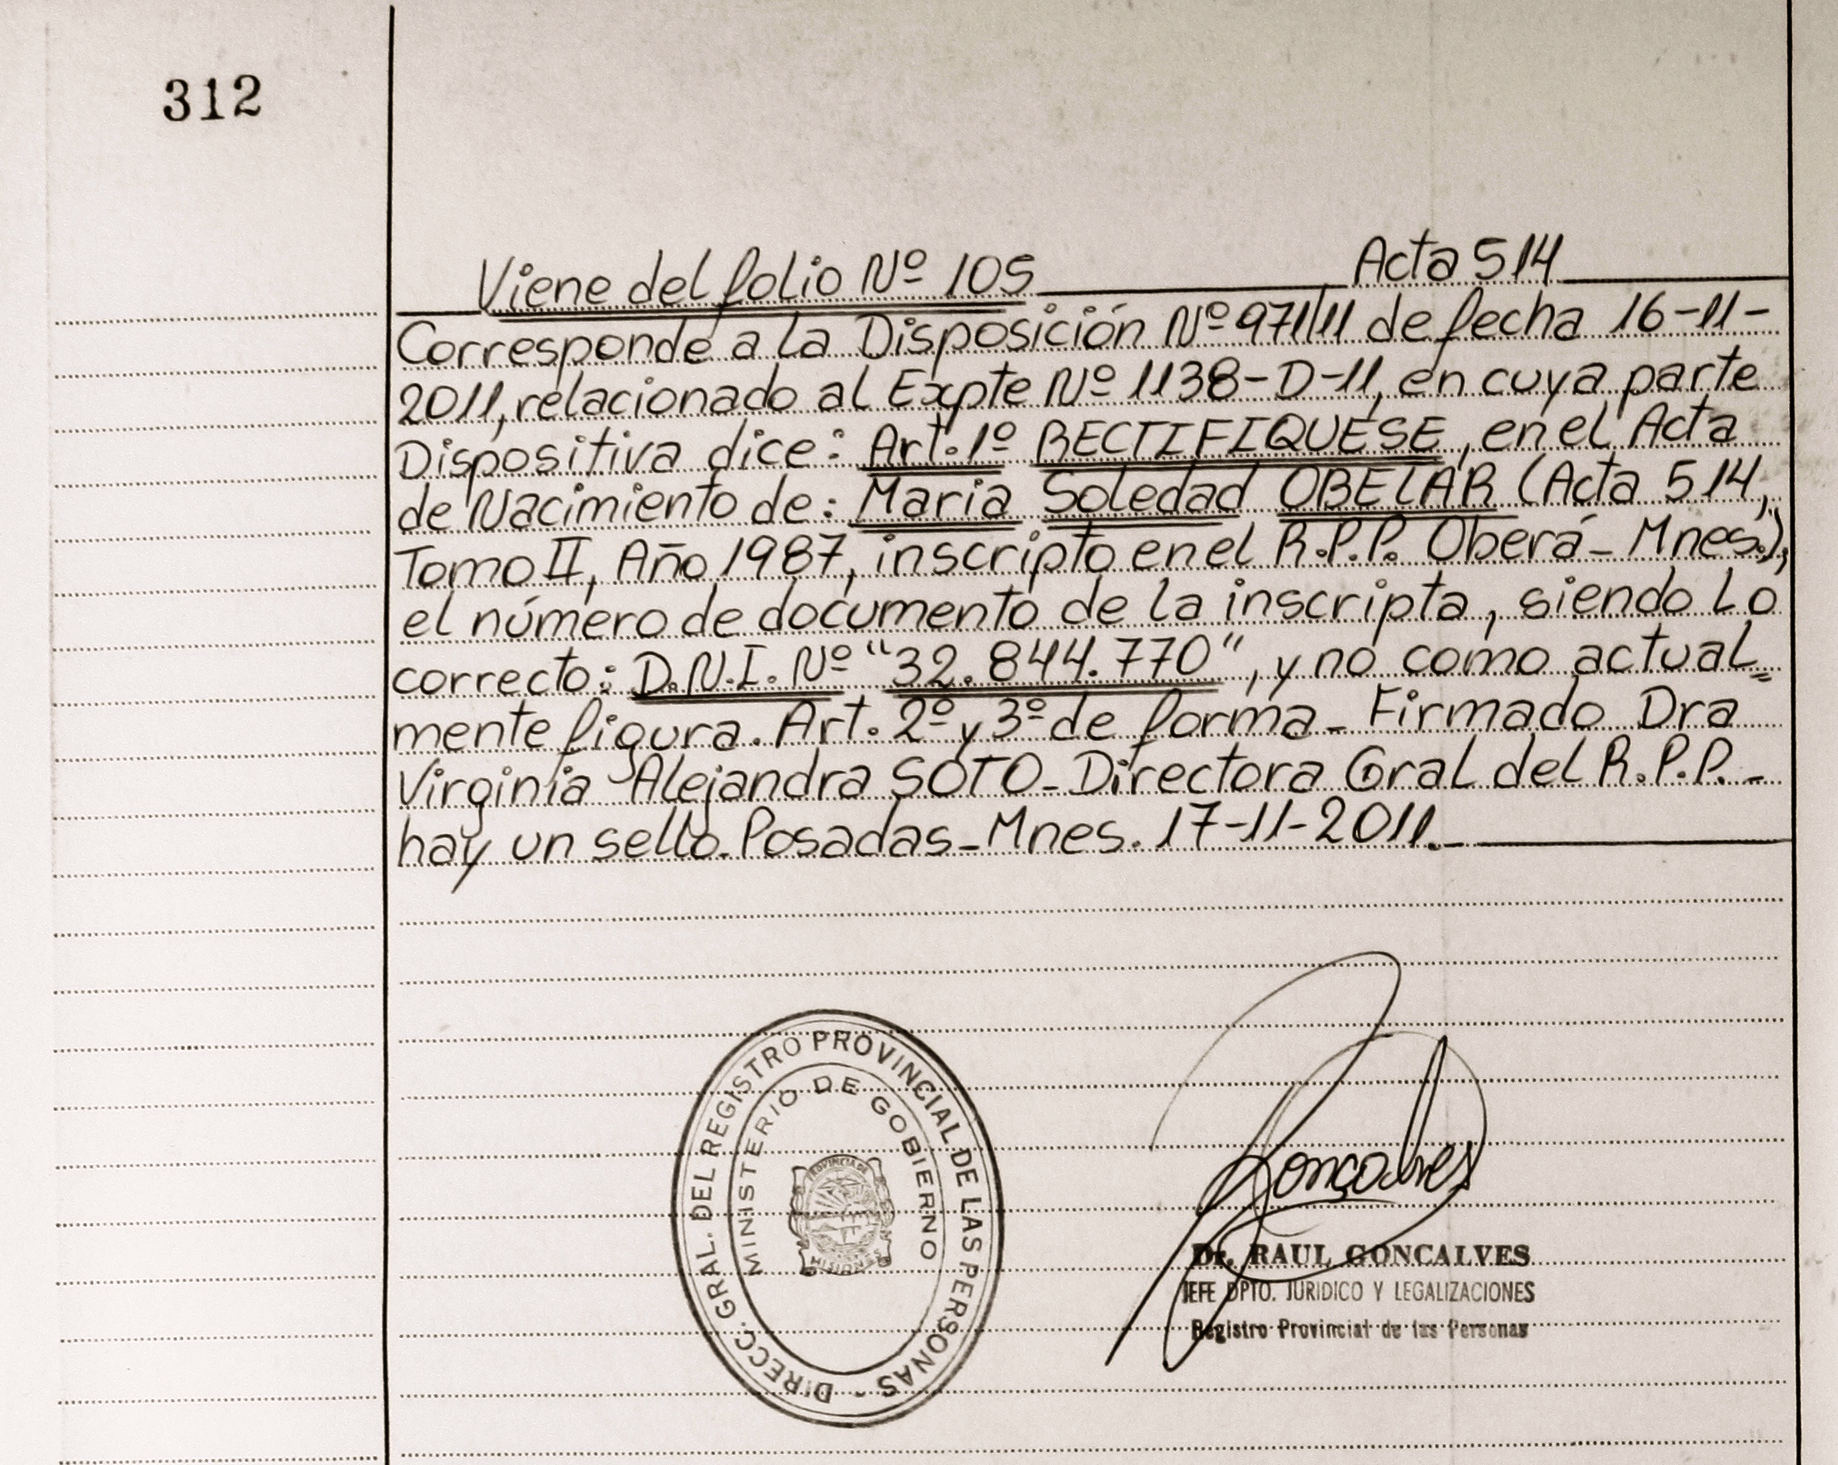 312
Viene del folio Nº 105 Acta 514
Corresponde a la Disposición Nº 971/11 de fecha 16-11-
2011, relacionado al Expte Nº 1138-D-11, en cuya parte
Dispositiva dice: Art. 1º RECTIFIQUESE, en el Acta
de Nacimiento de: Maria Soledad OBELAR (Acta 514,
Tomo II, Año 1987, inscripto en el R.P.P. Oberá - Mnes.),
el número de documento de la inscripta, siendo lo
correcto: D.N.I. Nº "32.844.770", y no como actual=
mente figura. Art. 2º y 3º de forma - Firmado Dra
Virginia Alejandra SOTO - Directora Gral del R.P.P. -
hay un sello. Posadas - Mnes. 17-11-2011.-
DIRECC. GRAL. DEL REGISTRO PROVINCIAL DE LAS PERSONAS -
MINISTERIO DE GOBIERNO
PROVINCIA DE
MISIONES
Goncalves
Dr. RAUL GONCALVES
JEFE DPTO. JURIDICO Y LEGALIZACIONES
Registro Provincial de las Personas